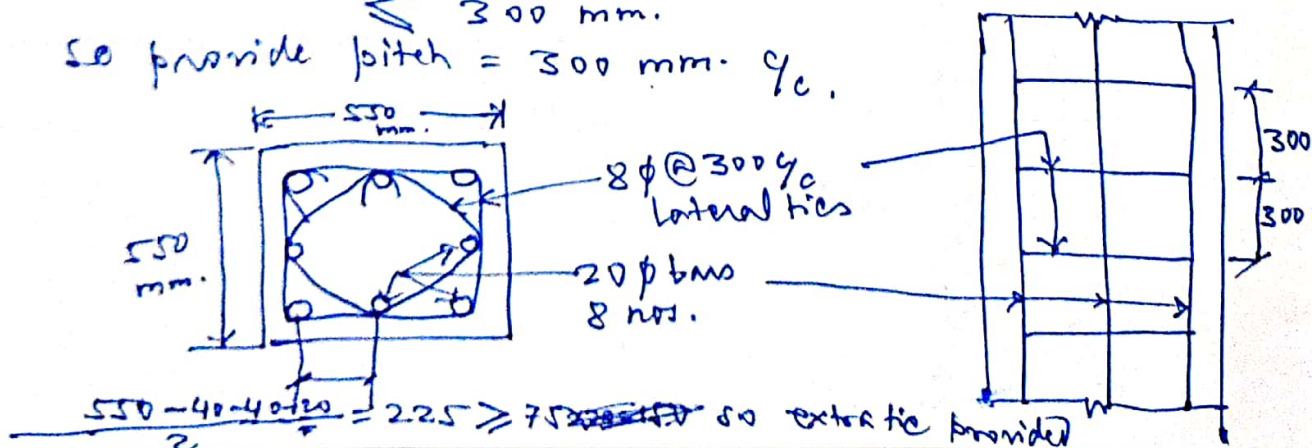 ≤ 300 mm.
So provide pitch = 300 mm. c/c.
550
mm.
550
mm.
8 ϕ @ 300 c/c
Lateral ties
20 ϕ bars
8 nos.
300
300
550-40-40-20 = 225 ≥ 75 so extra tie provided
2